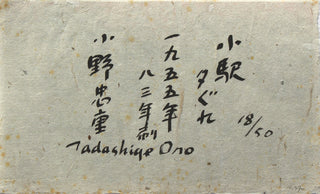 小駅
夕ぐれ
一九五五年
八三年刷
小野忠重
Tadashige Ono
18/50